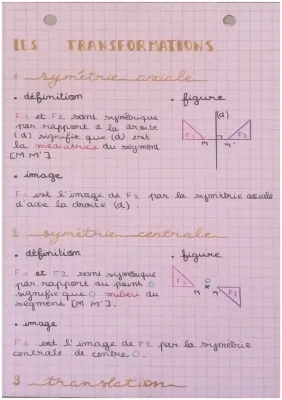 LES TRANSFORMATIONS
1 symétrie axiale
• définition
F1 et F2 sont symétrique
par rapport à la droite
(d) signifie que (d) est
la médiatrice du segment
[M M'].
• figure
(d)
F1
F2
M
M'
• image
F1 est l'image de F2 par la symétrie axiale
d'axe la droite (d).
2 symétrie centrale
• définition
F1 et F2 sont symétrique
par rapport au point O
signifie que O milieu du
segment [M M'].
• figure
F1
O
M
M'
F2
• image
F1 est l'image de F2 par la symétrie
centrale de centre O.
3 translation